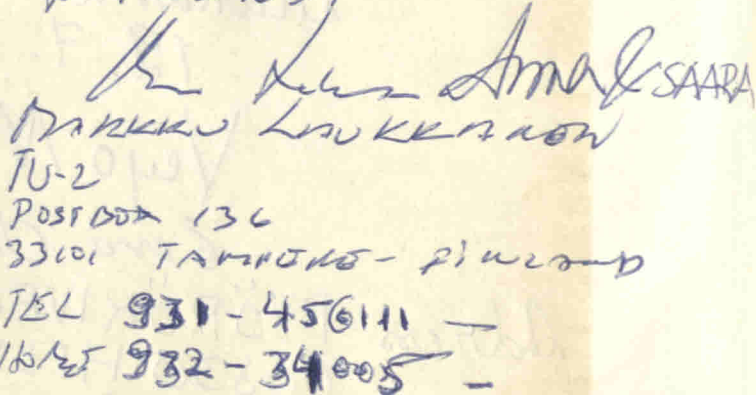 Anna & SAARA
MARKKU LAUKKANEN
TU-2
POSTBOX 136
33101 TAMPERE - FINLAND
TEL 931-456111 —
HOME 932-34005 —